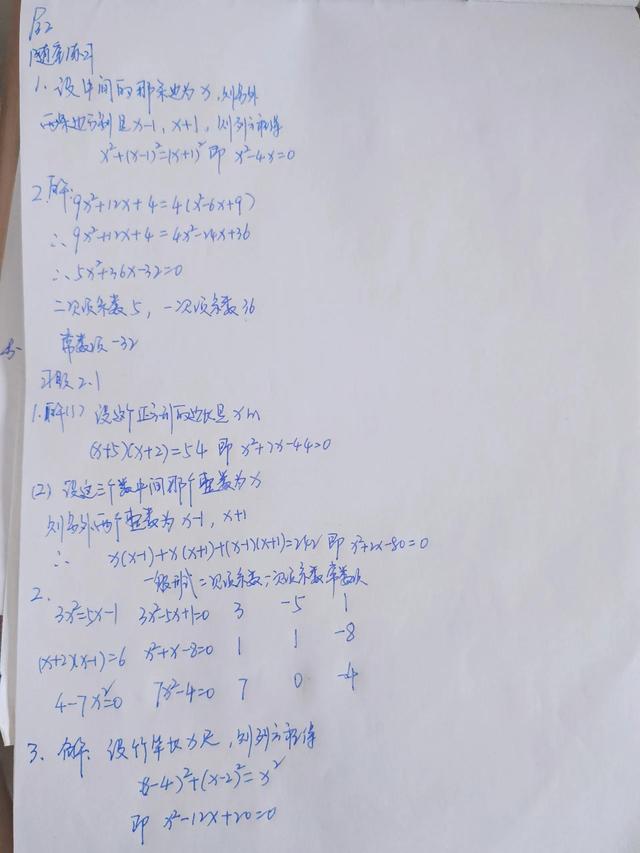 P32
随堂练习
1. 设中间的那条边为x,则另外
两条边分别是x-1, x+1, 则列方程得
x²+(x-1)²=(x+1)² 即 x²-4x=0
2.解: 9x²+12x+4=4(x²-6x+9)
∴ 9x²+12x+4=4x²-24x+36
∴ 5x²+36x-32=0
二次项系数5, 一次项系数36
常数项-32
习题2.1
1.解(1) 设这个正方形的边长是xm
(x+5)(x+2)=54 即 x²+7x-44=0
(2) 设这三个数中间那个整数为x
则另外两个整数为x-1, x+1
∴ x(x-1)+x(x+1)+(x-1)(x+1)=242 即
2. 一般形式 二次项系数 一次项系数 常数项
3x²=5x-1 3x²-5x+1=0 3 -5 1
(x+2)(x-1)=6 x²+x-8=0 1 1 -8
4-7x²=0 7x²-4=0 7 0 -4
3. 解: 设竹竿长x尺,则列方程得
(x-4)²+(x-2)²=x²
即 x²-12x+20=0